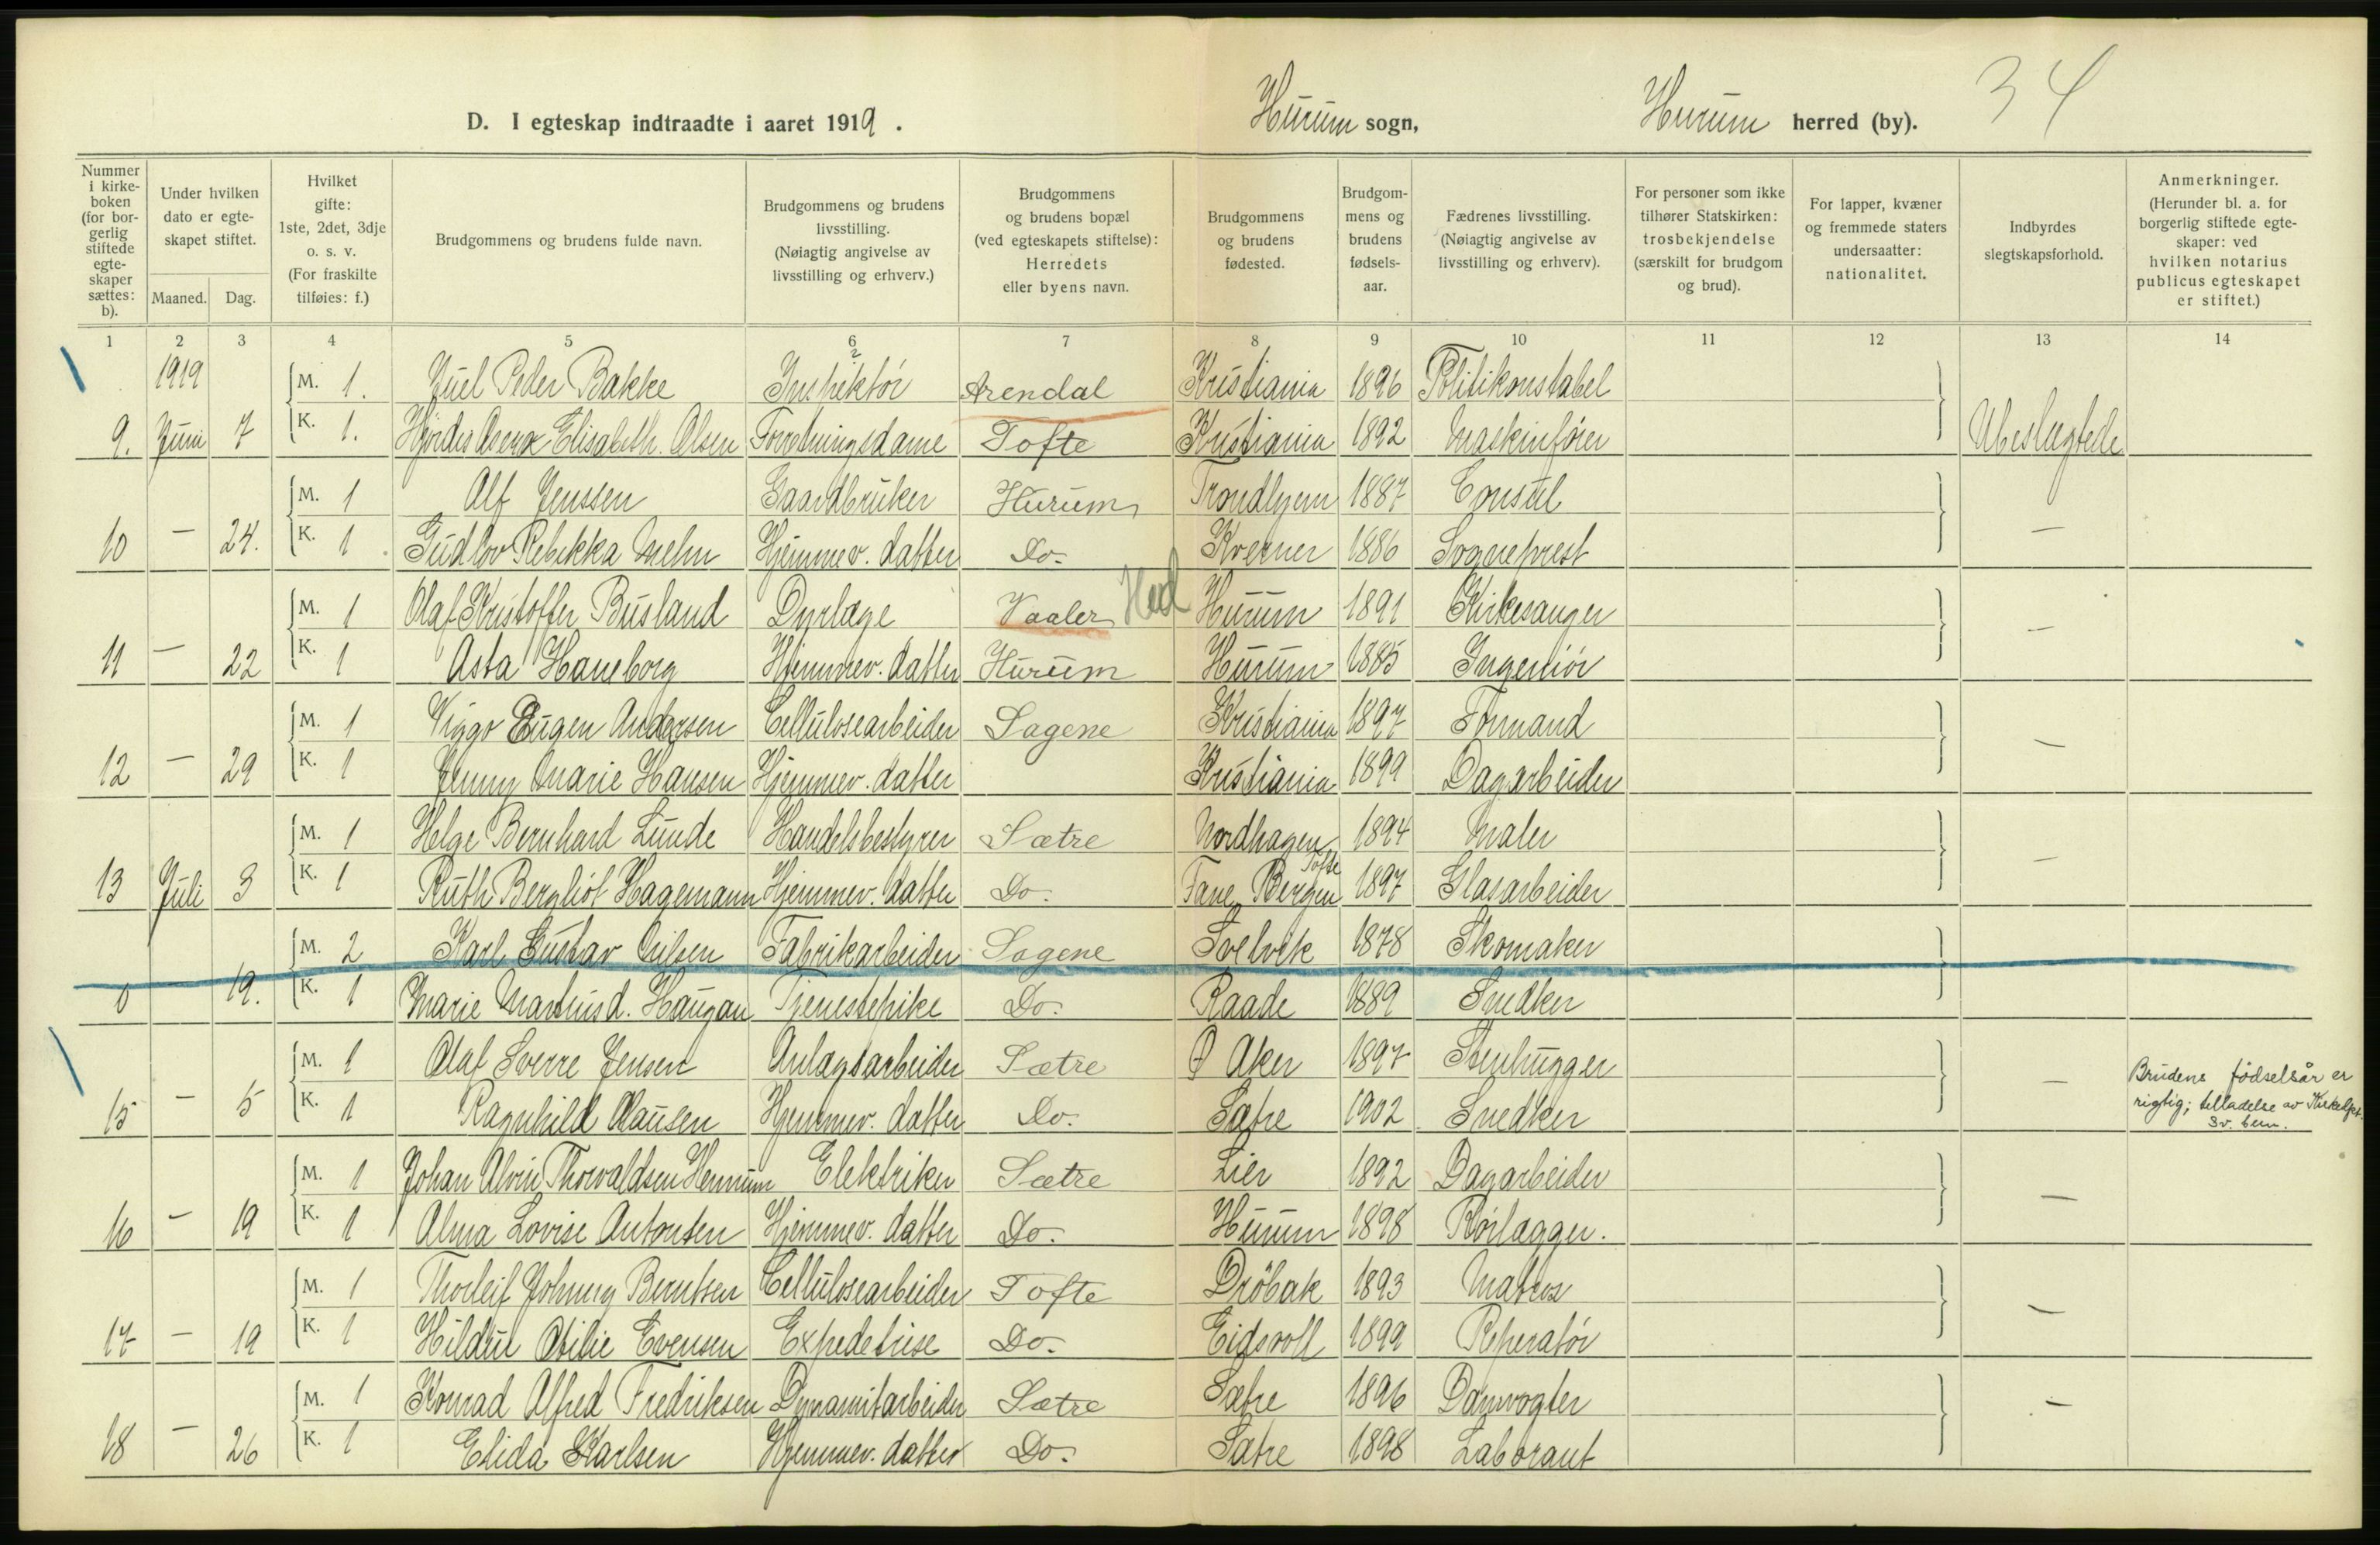 D. I egteskap indtraadte i aaret 1919. Hurum sogn, Hurum herred (by). 34
Nummer i kirkeboken (for borgerlig stiftede egteskaper sættes: b).
Under hvilken dato er egteskapet stiftet.
Maaned. Dag.
Hvilket gifte: 1ste, 2det, 3dje o. s. v. (For fraskilte tilføies: f.)
Brudgommens og brudens fulde navn.
Brudgommens og brudens livsstilling. (Nøiagtig angivelse av livsstilling og erhverv.)
Brudgommens og brudens bopæl (ved egteskapets stiftelse): Herredets eller byens navn.
Brudgommens og brudens fødested.
Brudgommens og brudens fødselsaar.
Fædrenes livsstilling. (Nøiagtig angivelse av livsstilling og erhverv).
For personer som ikke tilhører Statskirken: trosbekjendelse (særskilt for brudgom og brud).
For lapper, kvæner og fremmede staters undersaatter: nationalitet.
Indbyrdes slegtskapsforhold.
Anmerkninger. (Herunder bl. a. for borgerlig stiftede egteskaper: ved hvilken notarius publicus egteskapet er stiftet.)
1 2 3 4 5 6 7 8 9 10 11 12 13 14
1919 M. 1. Juel Peder Bakke Inspektör Arendal Kristiania 1896 Politikonstabel
9. Juni 7 K. 1. Hjördis Elisabeth Olsen Forretningsdame Tofte Kristiania 1892 Maskinfører Ubeslægtede
M. 1 Alf Jenssen Gaardbruker Hurum Trondhjem 1887 Consul
10 — 24. K. 1 Gudlov Rebekka Mehn Hjemmev. datter Do. Kverner 1886 Sogneprest —
M. 1 Olaf Kristoffer Busland Dyrlæge Vaaler Hed Hurum 1891 Kirkesanger
11 — 22 K. 1 Asta Haneborg Hjemmev. datter Hurum Hurum 1885 Ingeniör —
M. 1 Viggo Eugen Andersen Cellulosearbeider Sagene Kristiania 1897 Formand
12 — 29 K. 1 Jenny Marie Hansen Hjemmev. datter Kristiania 1899 Dagarbeider —
M. 1 Helge Bernhard Lunde Handelsbestyrer Sætre Nordhagen Tofte 1894 Maler
13 Juli 3 K. 1 Ruth Bergliot Hagemann Hjemmev. datter Do. Fane Bergen 1897 Glasarbeider —
M. 2 Karl Gustav Nilsen Fabrikarbeider Sagene Svelvik 1878 Skomaker
0 19. K. 1 Marie Martinsd. Haugan Tjenestepike Do. Raade 1889 Snedker
M. 1 Olaf Sverre Jensen Anlægsarbeider Sætre Ø Aker 1897 Stenhugger
15 — 5 K. 1 Ragnhild Clausen Hjemmev. datter Do. Sætre 1902 Snedker — Brudens födselsår er rigtig; tilladelse av Kirkedept.
M. 1 Johan Alvin Thorvaldsen Hennum Elektriker Sætre Lier 1892 Dagarbeider
16 — 19 K. 1 Alma Lovise Antonsen Hjemmev. datter Do. Hurum 1898 Rörlægger. —
M. 1 Thorleif Johnny Berntsen Cellulosearbeider Tofte Dröbak 1893 Matros
17 — 19 K. 1 Hildur Otilie Evensen Expedetrise Do. Eidsvoll 1899 Reperatör —
M. 1 Konrad Alfred Fredriksen Dynamitarbeider Sætre Sætre 1896 Damvogter
18 — 26 K. 1 Elida Karlsen Hjemmev. datter Do. Sætre 1898 Laborant —